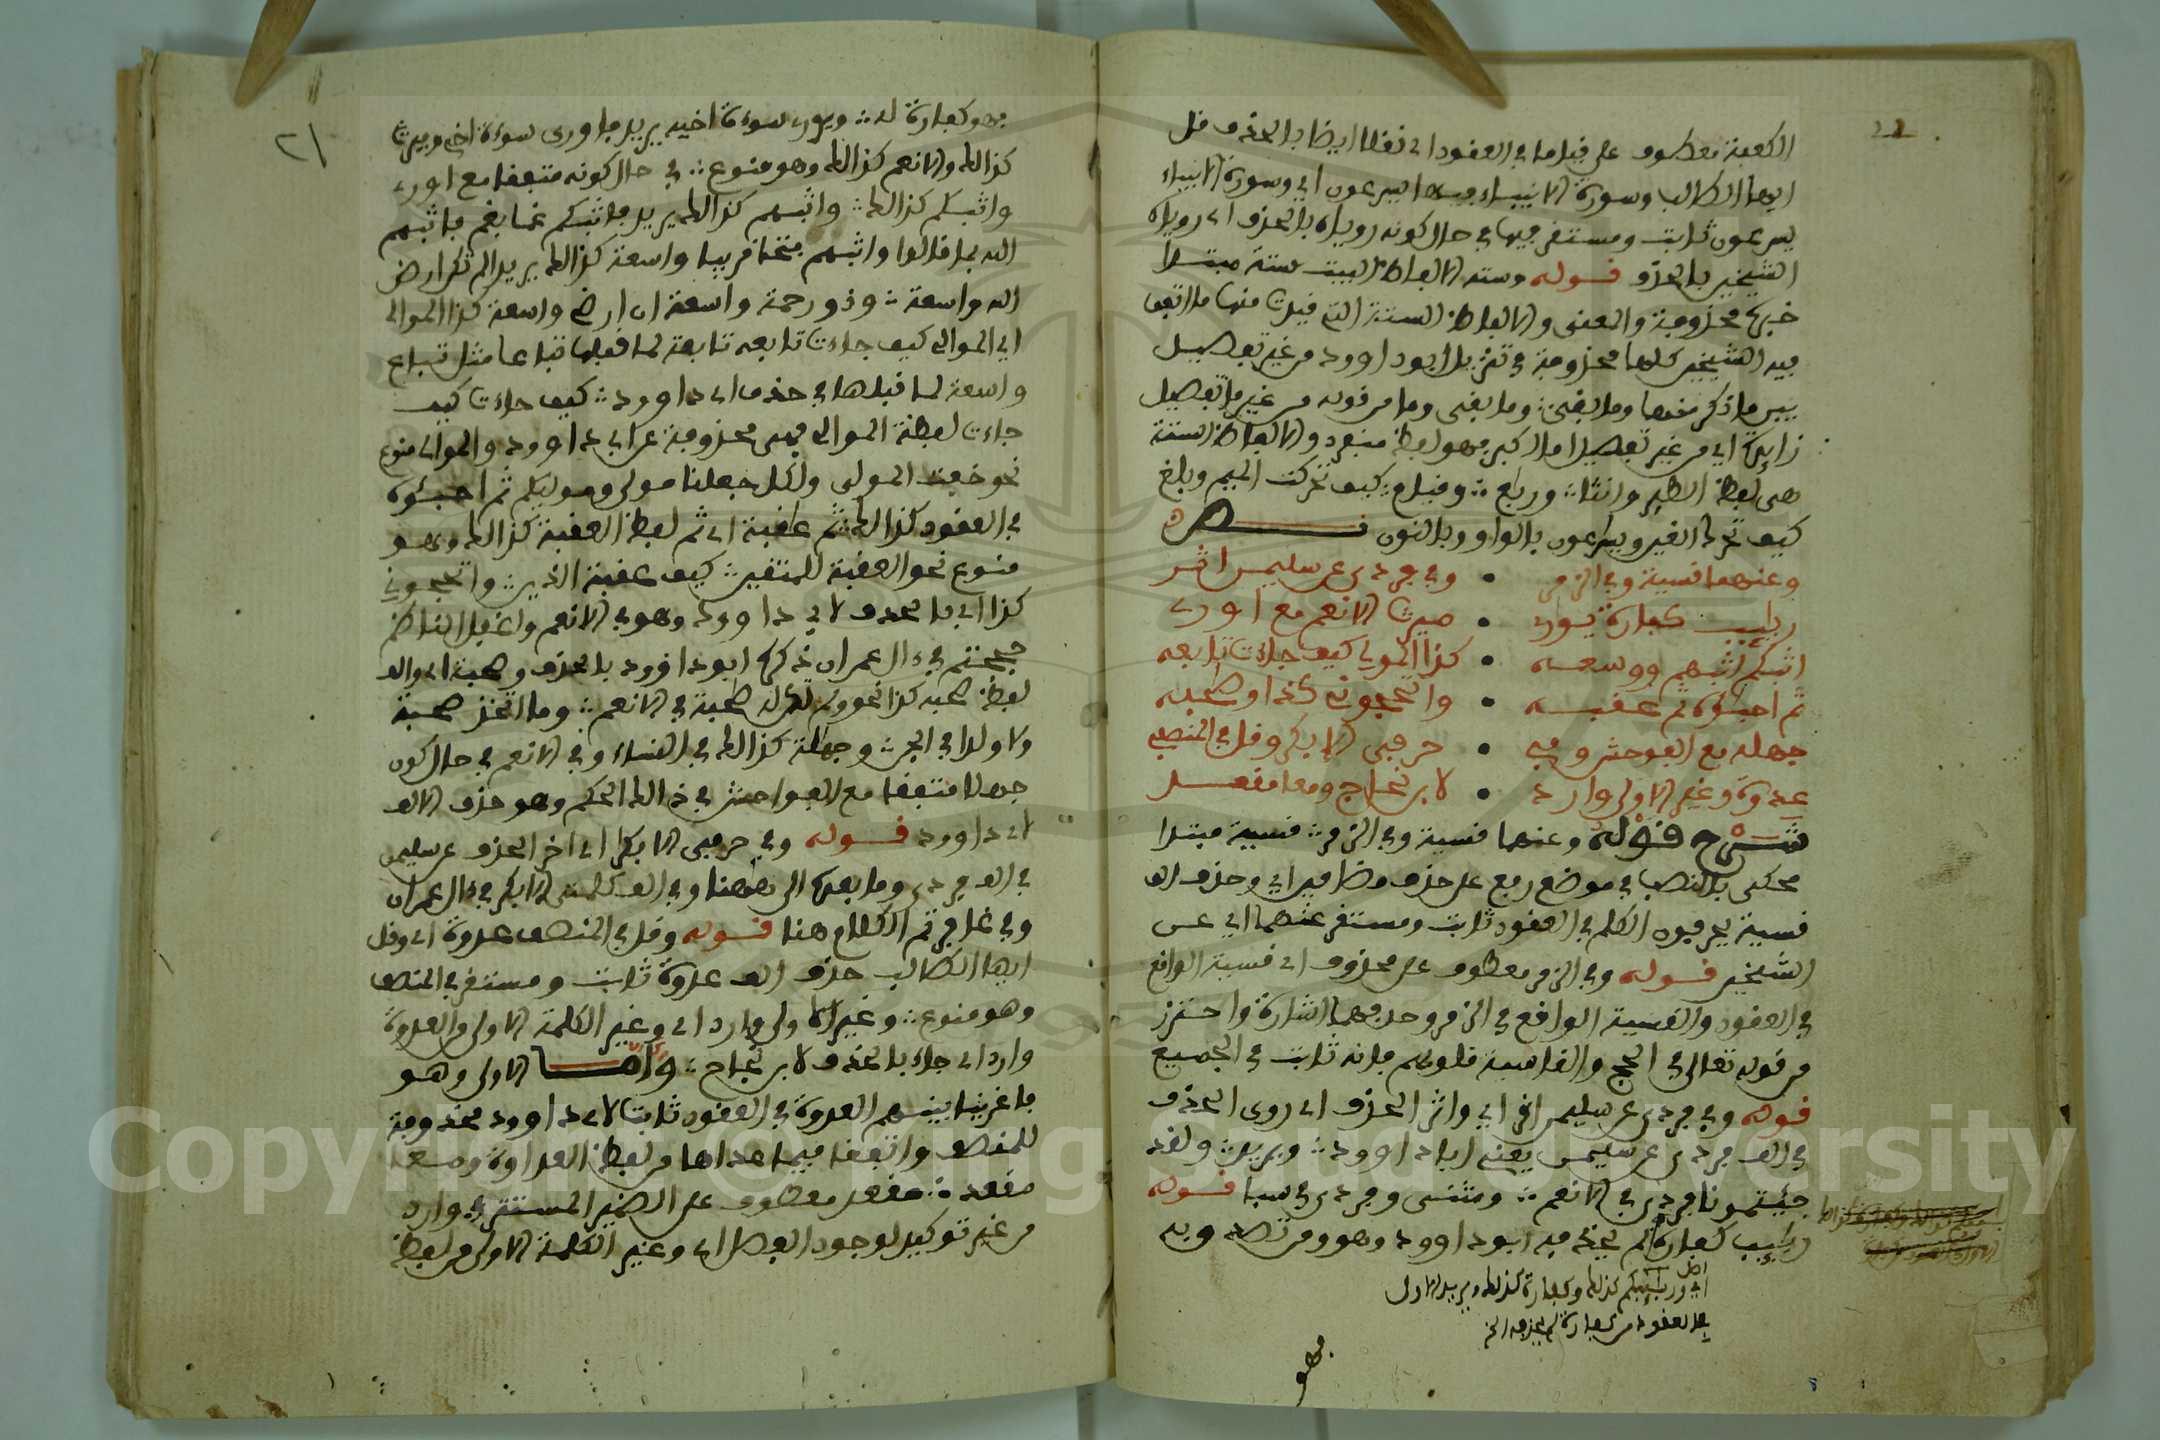 الكعبة معطوف على قيلما في العقود اى نقلا ايضا بالحذف قل
ايها الطالب وسورة الانبياء فيها يسرعون اي وسورة الانبياء
يسرعون ثابت ومستقر فيها في حال كونه رويناه بالحذف اى رويناه
الشيخين بالحذف قوله وستة الالفاظ البيت ستة مبتدا
خبره محذوفة والمعنى والالفاظ الستة التي قيلت منها ما اتفق
فيه الشيخين كلها محذوفة في تنزيل ابو داوود من غير تفصيل
بين ما ذكر منها وما بقي وما بقى وما من قوله من غير ما تفصيل
زايدة اي من غير تفصيل اما الكبير فهو لفظ منفرد والالفاظ الستة
هى لفظ الطير وانثا وربع وقيلم كيف تحركت الميم وبلغ
كيف تحرك الغين ويسرعون بالواو وبالنون نصه
وعنهما قسية وفي الزمر • وفي فردى عن سليمن اثر
ربيب كفارة يورى • ميرث الانعم مع اورى
اثبكم اثبهم ووسعه • كذا الموالي كيف جاءت تابعه
ثم احبؤه ثم عقبه • واتحجونى كذا وصحبه
جهلة مع الفوحش وفي • حرفي الابكر وقل في المنصف
عدوة وغير الاولى وارد • لابن نجاح ومعا مقعد
شرح قوله وعنهما قسية وفي الزمر قسية مبتدا
محكى بالنصب في موضع رفع على حذف مضافين اي وحذف الف
قسية يحرفون الكلم في العقود ثابت ومستقر عنهما اي عن
الشيخين قوله وفي الزمر معطوف على محذوف اى قسية الواقع
في العقود والقسية الواقع في الزمر وحد فيهما اشارة واحترز
من قوله تعالى في الحج والقاسية قلوبهم فانه ثابت في الجميع
قوله وفي فردى عن سليمن اثر اي واثر الحذف اى روى الحذف
في الف فردى عن سليمن يعنى ابا داوود ويريد ولقد
جئتمونا فردى في الانعم ومثنى وفردى في سبا قوله
ربيب كفارة لم يحذفه ابو داوود وهو ومن نصه وبه
اي وربيبكم كذلك وكفارة كذلك ويريد الاول
في العقود من كفارة لم يحذفه الخ
فهو
٢١
فهو كفارة له ويورى سوءة اخيه يريد فاورى سوءة اخي وميرث
كذالك والانعم كذالك وهو منوع في حال كونه متفقا مع اورى
واثبكم كذالك واثبهم كذالك يريد فاثبكم غما بغم فاثبهم
الله بما قالوا واثبهم فتحا قريبا واسعة كذالك يريد الم تكن ارض
الله واسعة وذو رحمة واسعة ان ارضي واسعة كذا الموالى
اي الموالي كيف جاءت تابعه تابعة لما قبلها تباعا مثل تباع
واسعة لما قبلها في حذف ابي داوود كيف جاءت كيف
جاءت لفظة الموالي فهي محذوفة عن ابي داوود والموالى منوع
نحو خفت الموالى ولكل جعلنا مولى وموليكم ثم احبؤه
في العقود كذالك ثم عقبة اى ثم لفظ العقبة كذالك وهو
منوع نحو العقبة للمتقين كيف عقبة الذين واتحجوني
كذا اى بالحذف لابي داوود وهو في الانعم واغفل الناظم
حججتم في ءال عمران ذكره ابو داوود بالحذف وصحبة اى والف
لفظ صحبه كذا نحو ولم تكن له صحبة في الانعم وما اتخذ صحبة
ولا ولدا في الجن وجهلة كذالك في النساء وفي الانعم في حال كون
جهلة متفقا مع الفواحش في ذالك الحكم وهو حذف الالف
لابي داوود قوله وفي حرفي الابكر اى اخر الحذف عن سليمن
في الف فردى وما بعده الى ههنا وفي الف كلمتى الابكر في ءال عمران
وفي غافر تم الكلام هنا قوله وقل في المنصف عدوة اى وقل
ايها الطالب حذف الف عدوة ثابت ومستقر في المنصف
وهو منوع وغير الاولى وارد اى وغير الكلمة الاولى من العدوة
وارد اى جاء بالحذف لابن نجاح واما الاولى وهو
فاغرينا بينهم العدوة في العقود ثابت لابى داوود محذوفة
للمنصف واتفقا فيما عداها من لفظ العداوة ومعا
مقعد مقعد معطوف على الضمير المستتر في وارد
من غير توكيد لوجود الفصل اى وغير الكلمة الاولى من لفظ
Copyright © King Saud University